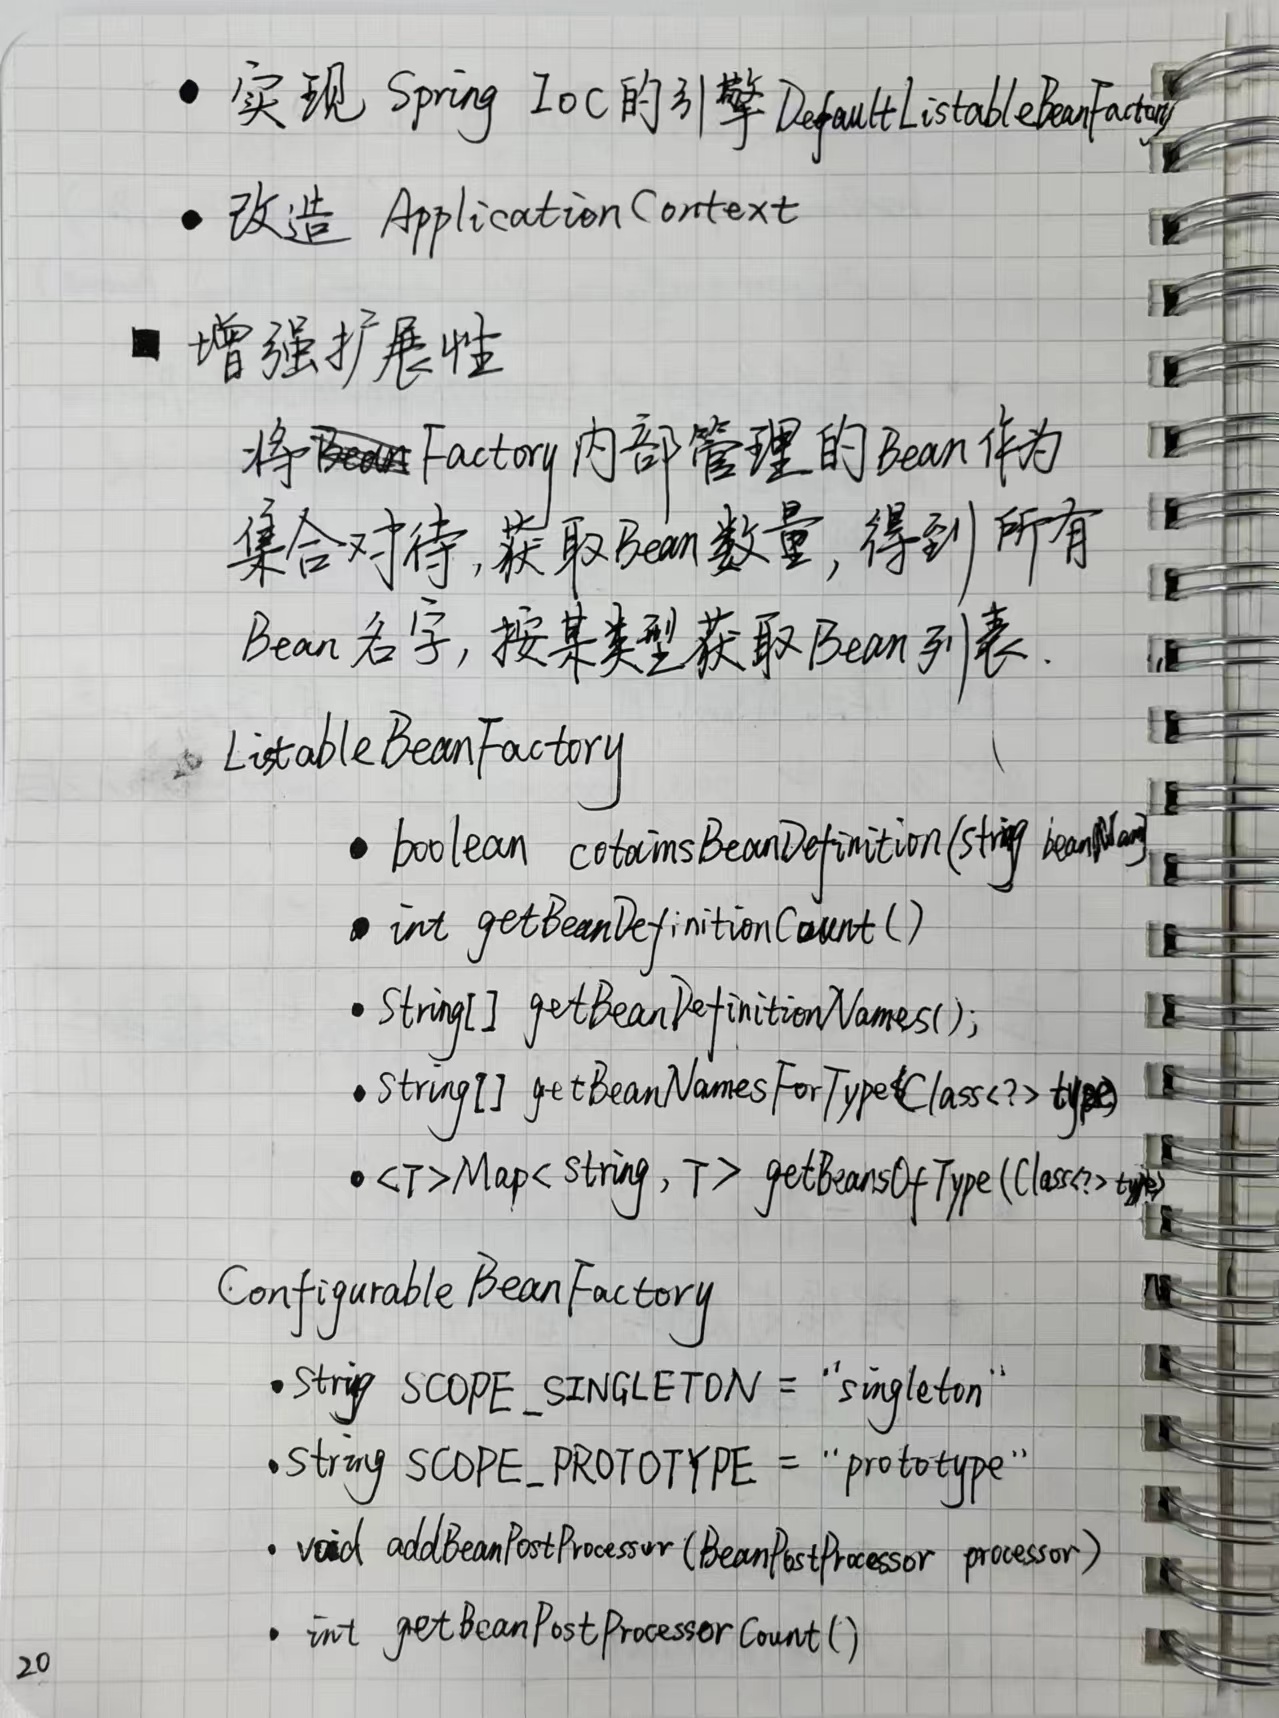 • 实现 Spring IoC的引擎DefaultListableBeanFactory
• 改造 ApplicationContext
■ 增强扩展性
将Factory内部管理的Bean作为
集合对待,获取Bean数量,得到所有
Bean名字,按某类型获取Bean列表.
ListableBeanFactory
• boolean cotainsBeanDefinition(String beanNam
• int getBeanDefinitionCount()
• String[] getBeanDefinitionNames();
• String[] getBeanNamesForType(Class<?> type)
• <T>Map<String, T> getBeansOfType(Class<?> type)
Configurable BeanFactory
• String SCOPE_SINGLETON = "singleton"
• String SCOPE_PROTOTYPE = "prototype"
• void addBeanPostProcessor(BeanPostProcessor processor)
• int getBeanPostProcessorCount()
20